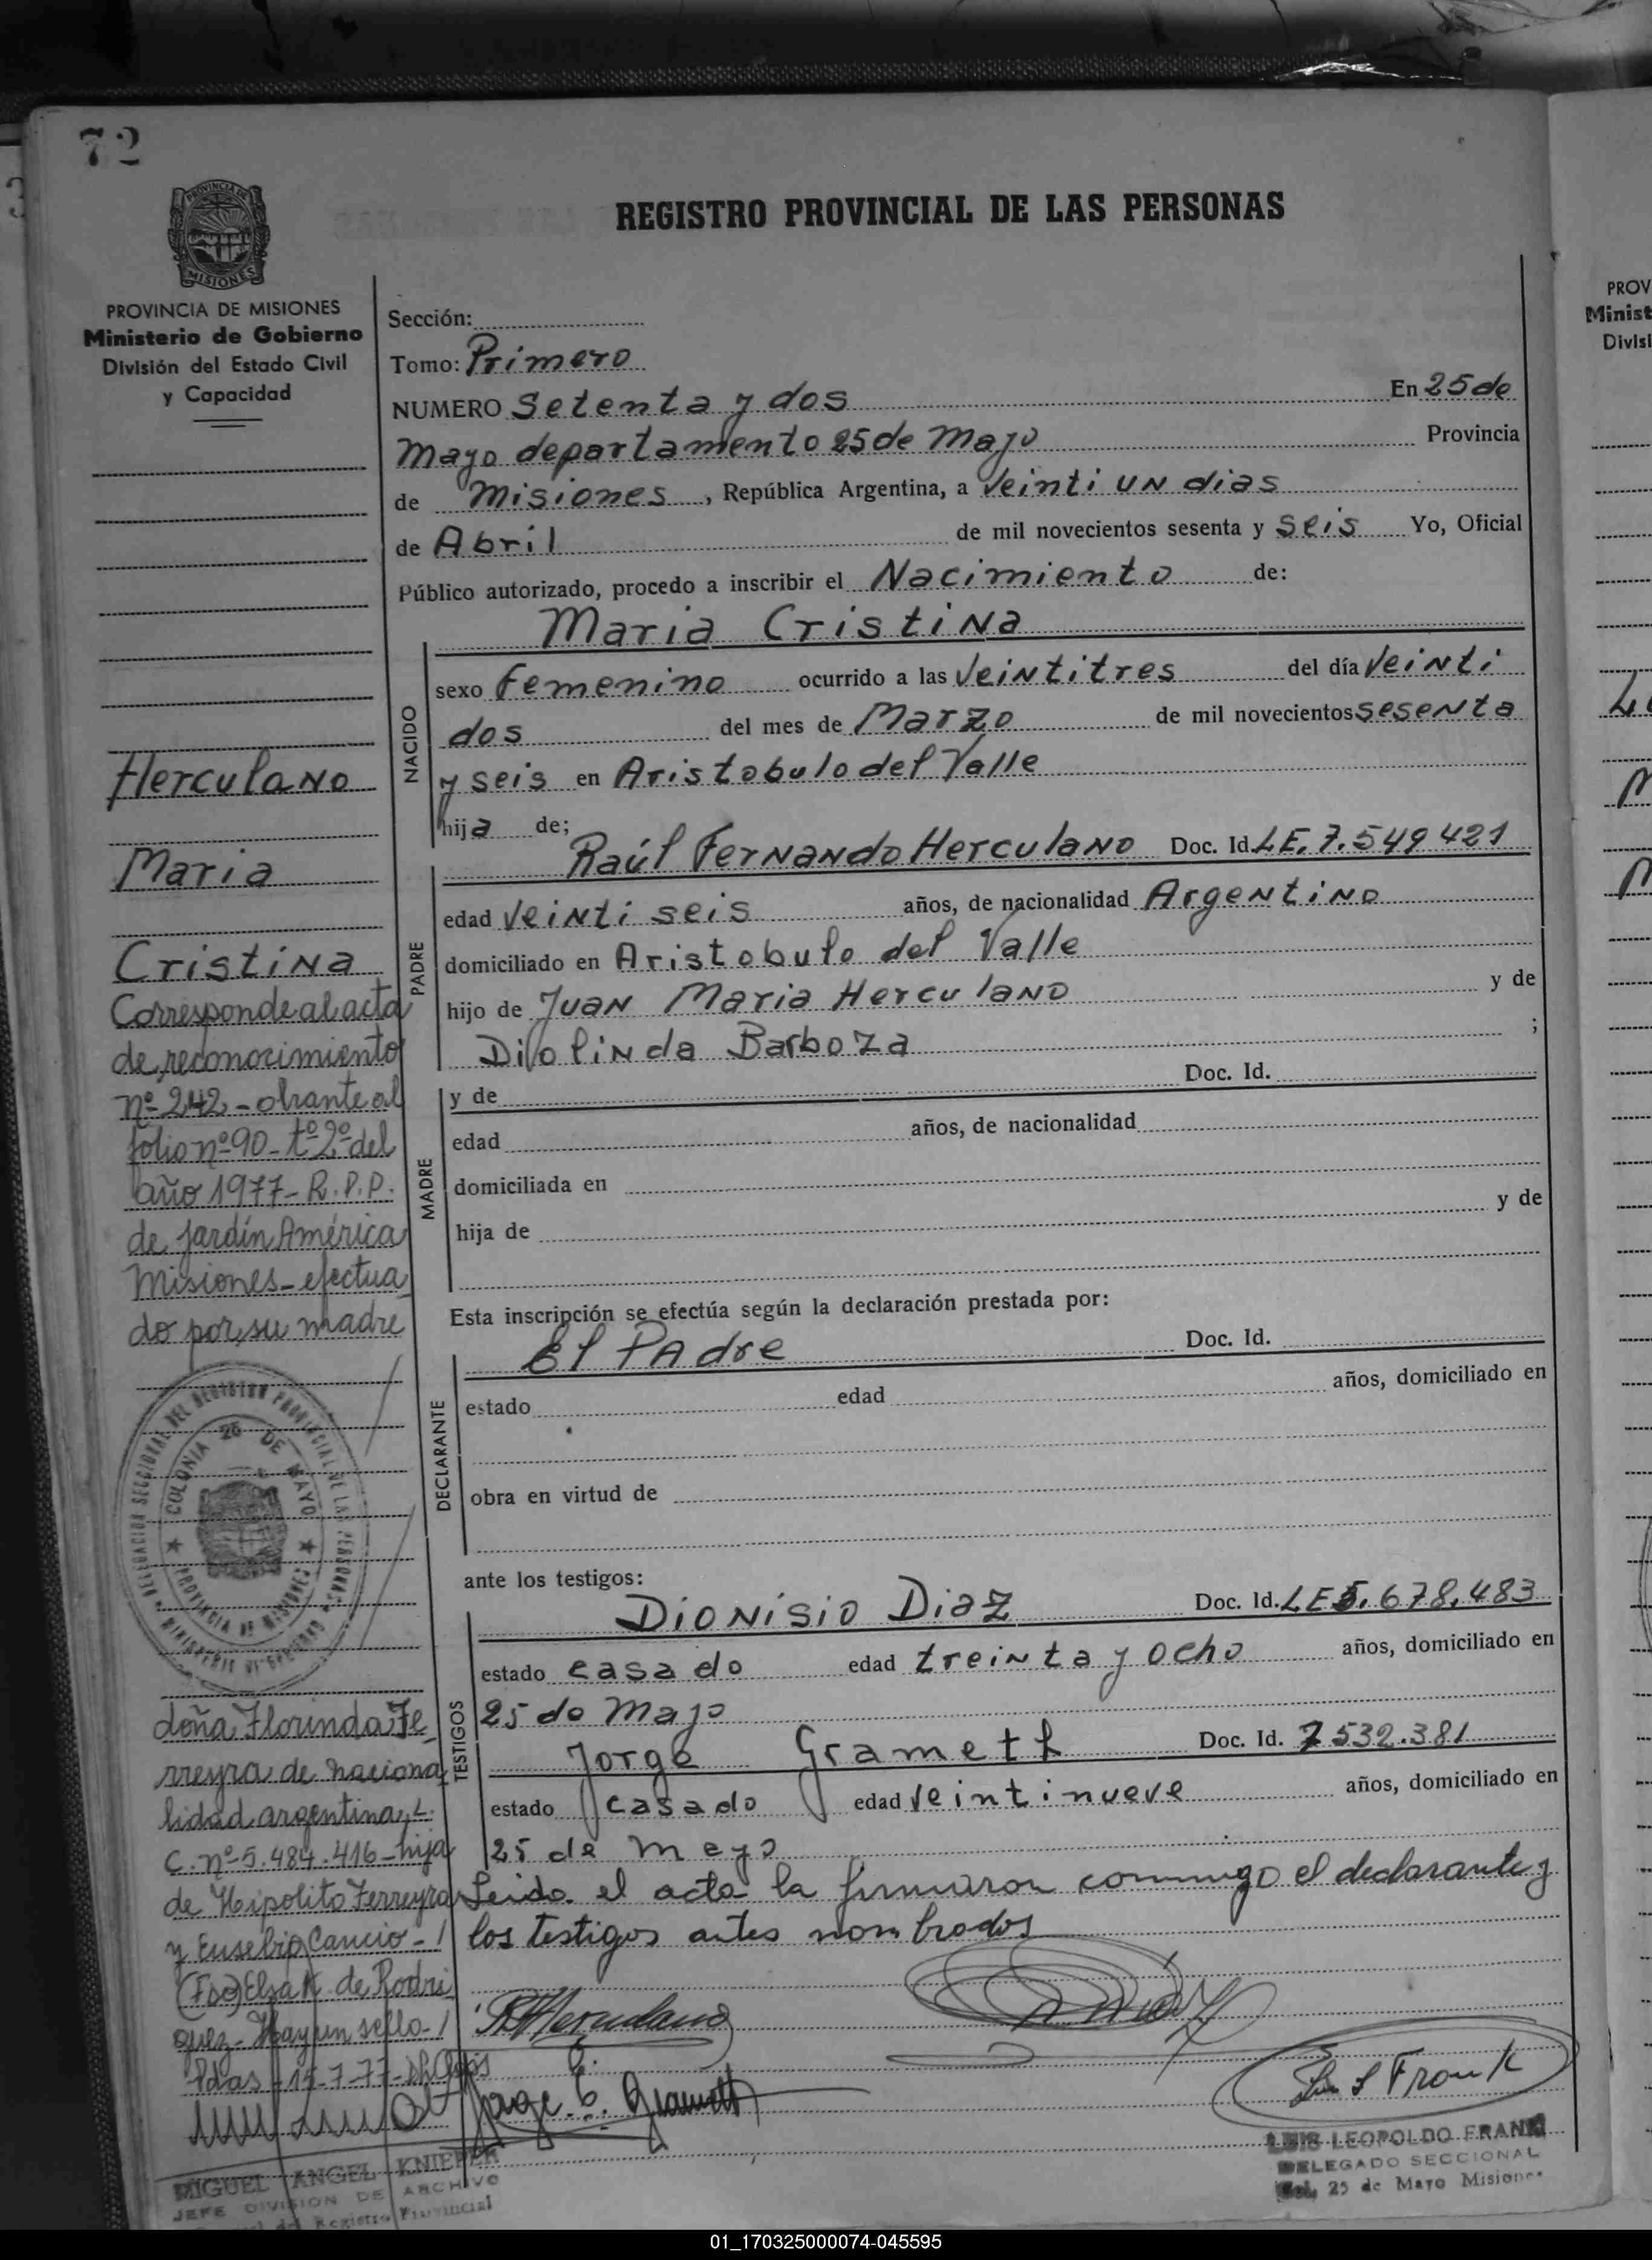 72
REGISTRO PROVINCIAL DE LAS PERSONAS
PROVINCIA DE
MISIONES
PROVINCIA DE MISIONES
Ministerio de Gobierno
División del Estado Civil
y Capacidad
Herculano
Maria
Cristina
Corresponde al acta
de reconocimiento
nº 242 - obrante al
folio nº 90 - tº 2º del
año 1977 - R.P.P.
de Jardín América
Misiones - efectua
do por su madre
COLONIA 25 DE MAYO
PROVINCIA DE MISIONES
doña Florinda Fe
rreyra de naciona
lidad argentina, L.
C. nº 5.484.416 - hija
de Hipolito Ferreyra
y Eusebia Cancio - /
(Fdo) Elsa K. de Rodri
guez - Hay un sello - /
Pdas - 15-7-77 -
MIGUEL ANGEL KNIEPER
JEFE DIVISION DE ARCHIVO
Registro Provincial
Sección:
Tomo: Primero
NUMERO Setenta y dos En 25 de
Mayo departamento 25 de Mayo Provincia
de Misiones, República Argentina, a Veinti un dias
de Abril de mil novecientos sesenta y seis Yo, Oficial
Público autorizado, procedo a inscribir el Nacimiento de:
Maria Cristina
NACIDO
sexo Femenino ocurrido a las Veintitres del día Veinti
dos del mes de Marzo de mil novecientos sesenta
y seis en Aristobulo del Valle
hija de;
Raúl Fernando Herculano Doc. Id. LE. 7.549.421
PADRE
edad Veinti seis años, de nacionalidad Argentino
domiciliado en Aristobulo del Valle
hijo de Juan Maria Herculano y de
Diolinda Barboza ;
y de Doc. Id.
MADRE
edad años, de nacionalidad
domiciliada en
hija de y de
Esta inscripción se efectúa según la declaración prestada por:
El Padre Doc. Id.
DECLARANTE
estado edad años, domiciliado en
obra en virtud de
ante los testigos:
Dionisio Diaz Doc. Id. LE 5.678.483
TESTIGOS
estado casado edad treinta y ocho años, domiciliado en
25 de Mayo
Jorge Grameth Doc. Id. 7532.381
estado casado edad veintinueve años, domiciliado en
25 de mayo
Leida el acta la firmaron conmigo el declarante y
los testigos antes nombrados
R F Herculano
Jorge. E. Grameth
Luis L Frank
LUIS LEOPOLDO FRANK
DELEGADO SECCIONAL
Col. 25 de Mayo Misiones
PROV
Minist
Divisi
01_170325000074-045595